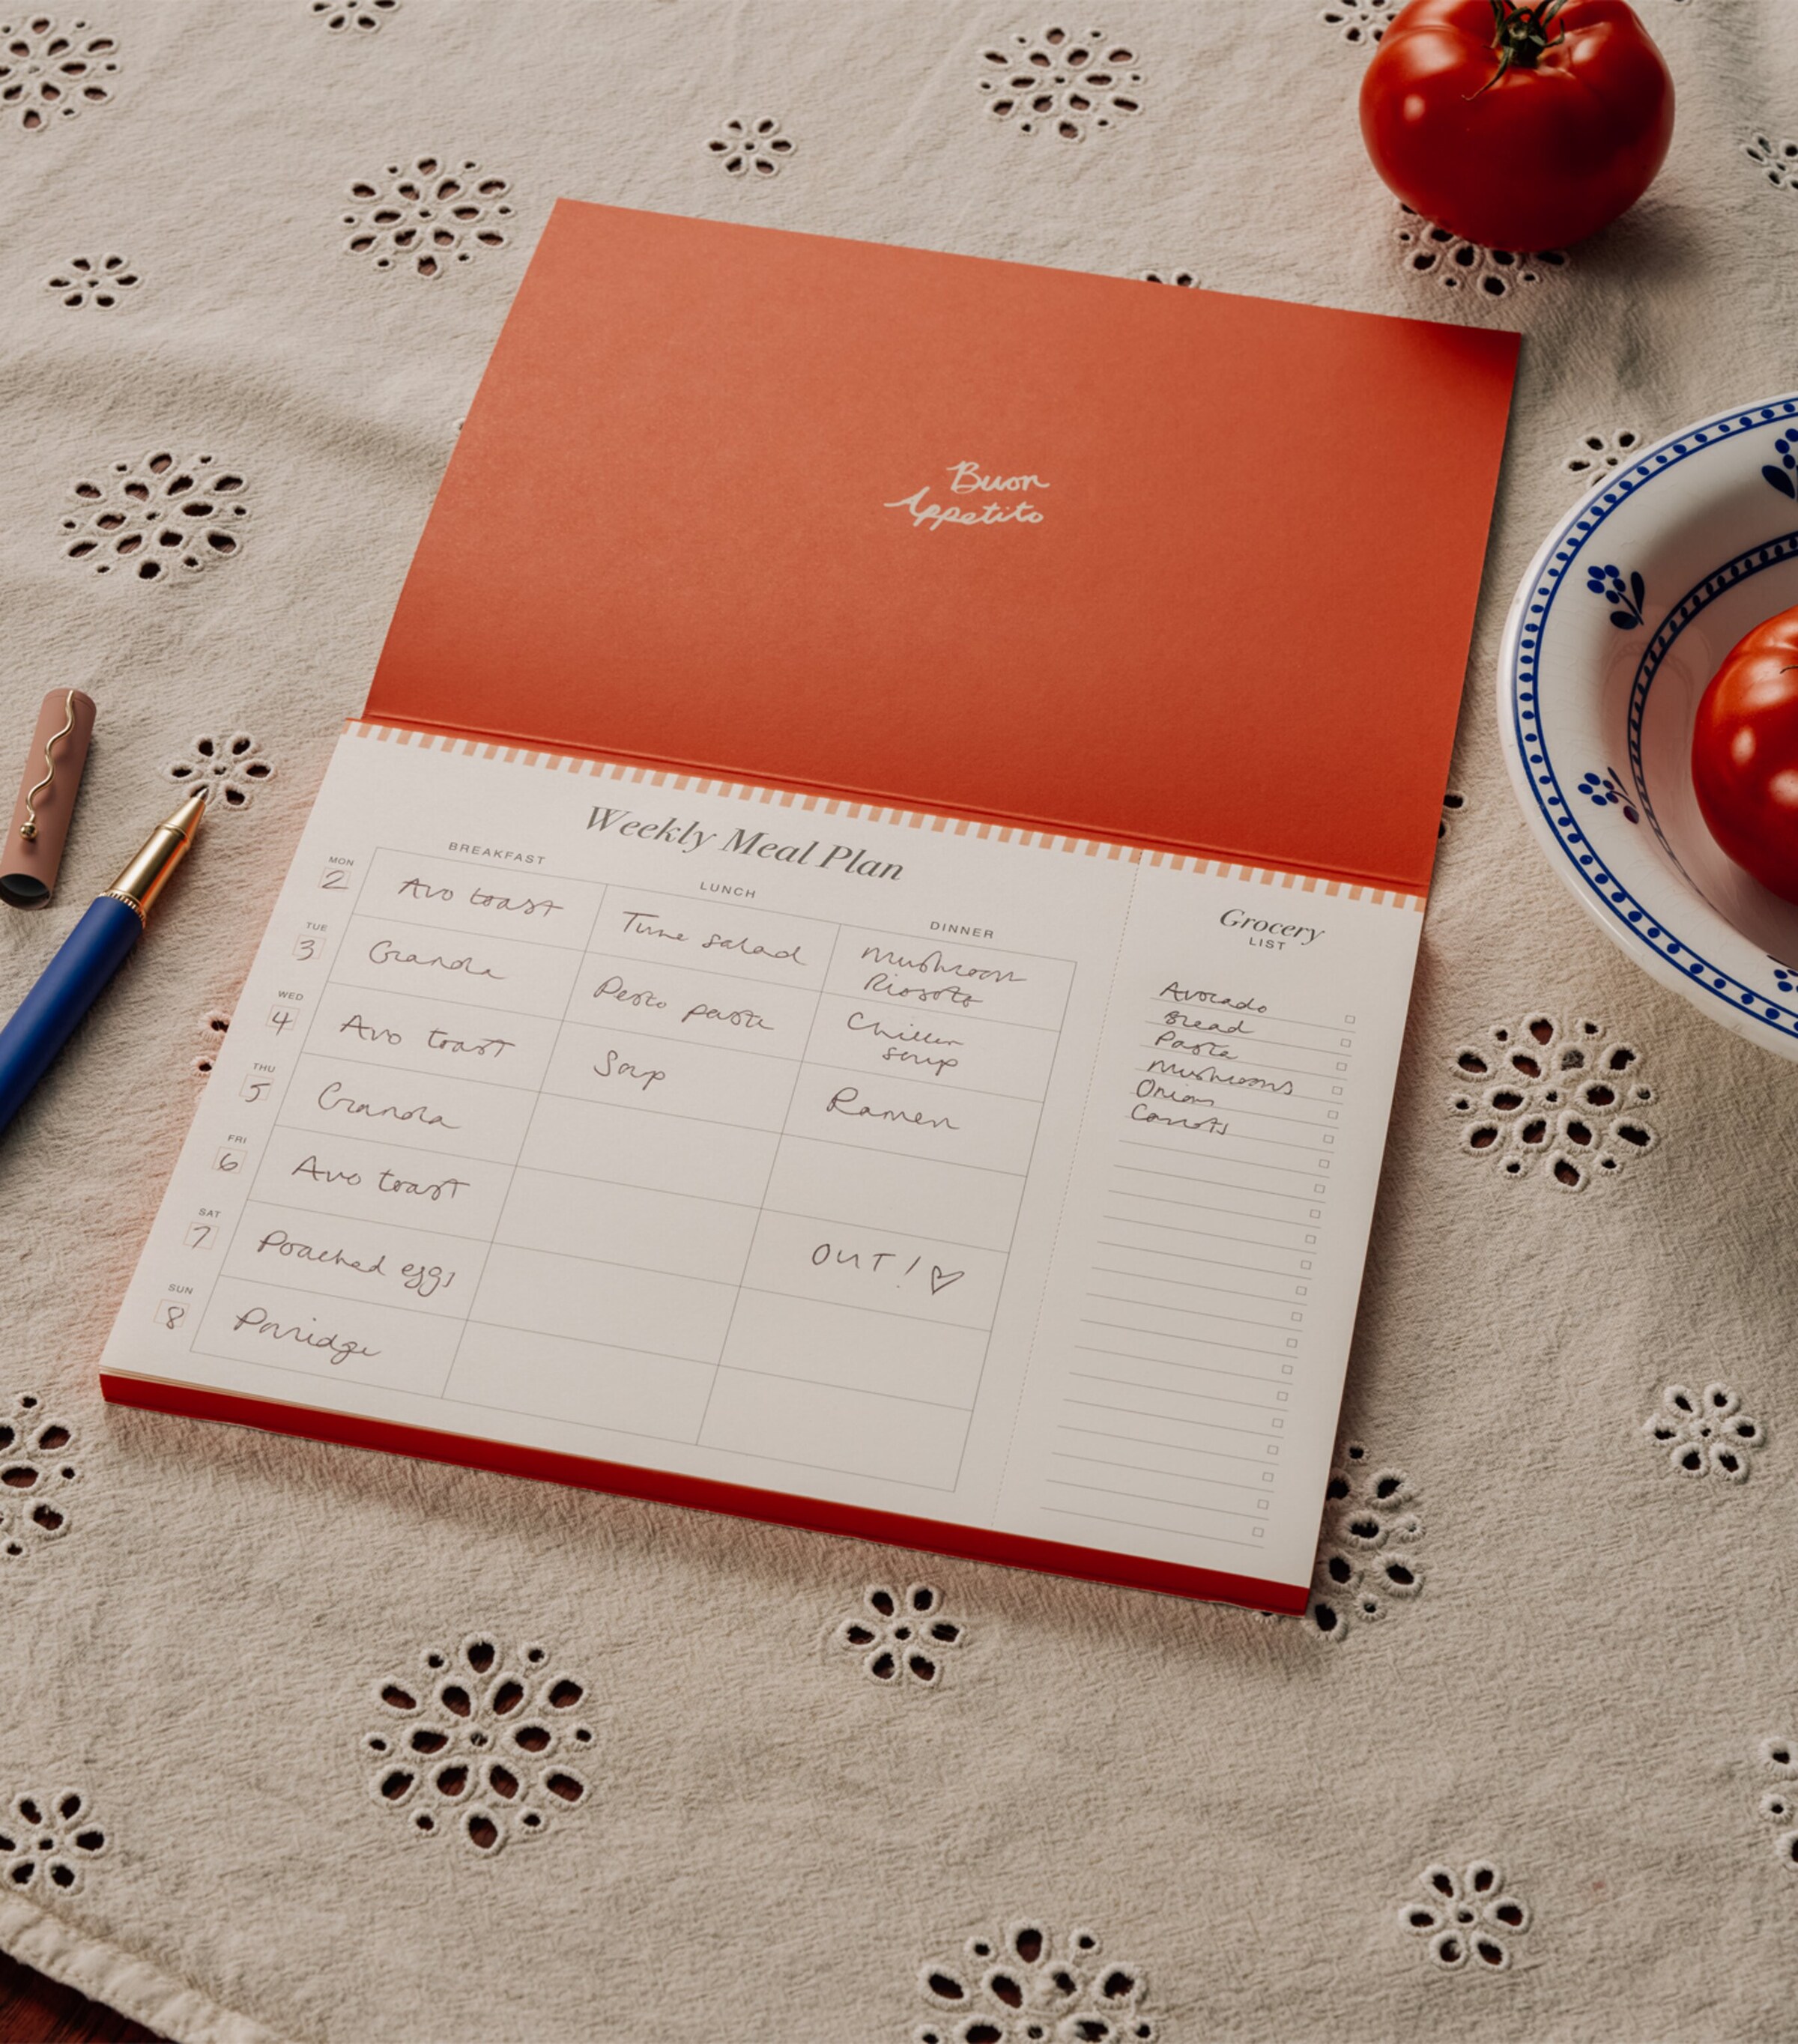 Buon
Appetito
Weekly Meal Plan
BREAKFAST
LUNCH
DINNER
MON
2
Avo toast
Tuna salad
Mushroom
Risotto
TUE
3
Granola
Pesto pasta
Chicken
soup
WED
4
Avo toast
Soup
Ramen
THU
5
Granola
FRI
6
Avo toast
OUT! ♡
SAT
7
Poached eggs
SUN
8
Porridge
Grocery
LIST
Avocado
Bread
Pasta
Mushrooms
Onions
Carrots